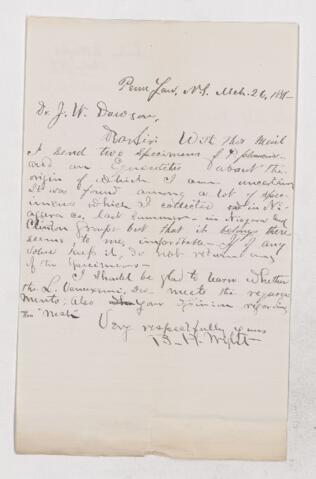 Penn Yan, N.Y. Mch. 26, 188
Dr. J. W. Dawson,
Dear Sir: With this mail
I send two specimens of
and an about the
origin of which I am uncertain
It was found among a lot of spec-
imens which I collected in Ni-
agara co. last summer - in Niagara and
Clinton Groups but that it belongs there
seems to me improbable - If of any
value keep it, do not return any
of the specimens -
I should be glad to learn whether
the L. Vanuxemi, Dn. meets the require-
ments; also your opinion regarding
the
Very respectfully yours
B. H. Wright